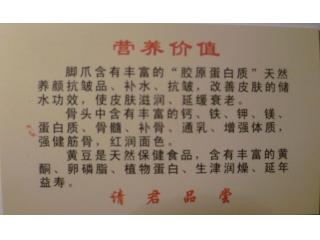 营养价值
脚爪含有丰富的“胶原蛋白质”天然
养颜抗皱品、补水、抗皱，改善皮肤的储
水功效，使皮肤滋润、延缓衰老。
骨头中含有丰富的钙、铁、钾、镁、
蛋白质、骨髓、补骨、通乳、增强体质，
强健筋骨，红润面色。
黄豆是天然保健食品，含有丰富的黄
酮、卵磷脂、植物蛋白、生津润燥、延年
益寿。
请君品尝